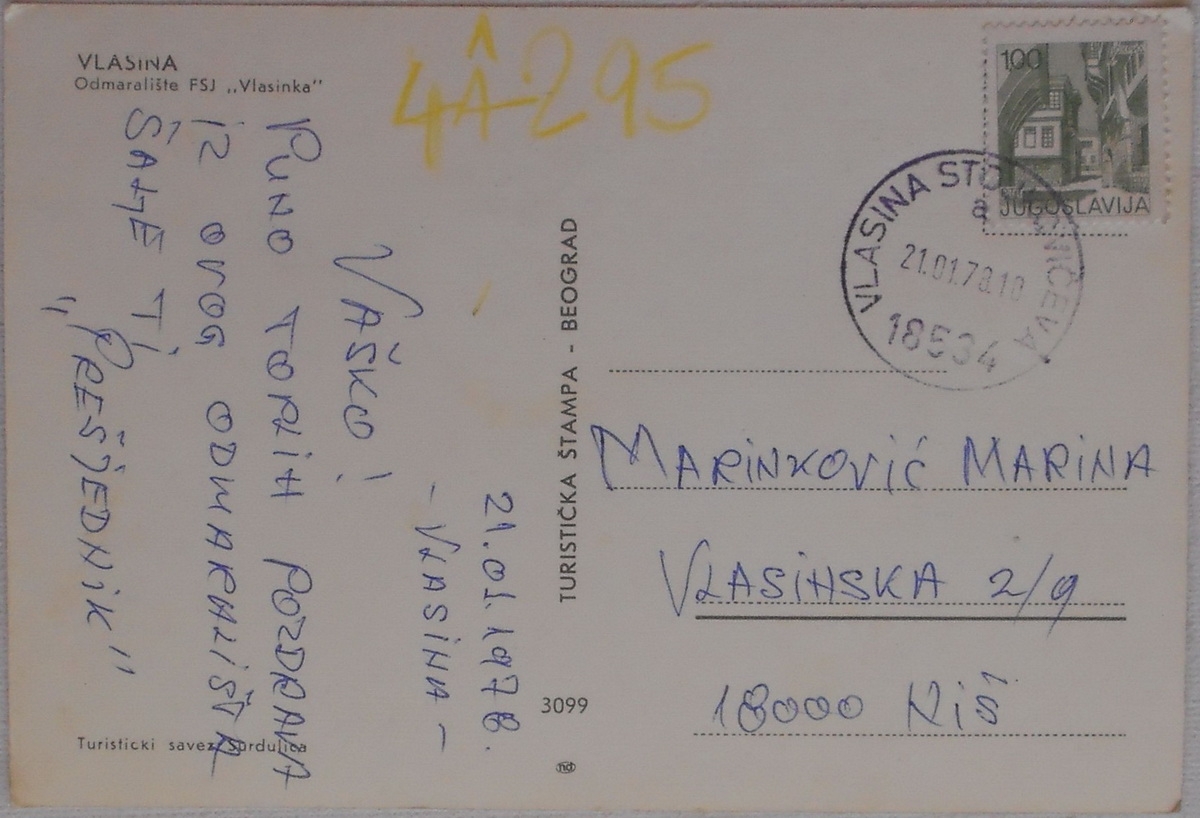 VLASINA
Odmaralište FSJ „Vlasinka"
4A295
100
JUGOSLAVIJA
VLASINA STOJKOVIĆEVA
a
21.01.78.10
18534
21.01.1978.
- VLASINA -
VAŠKO!
PUNO TOPLIH POZDRAVA
IZ OVOG ODMARALIŠTA
ŠALJE TI
„PREŠJEDNIK"
TURISTIČKA ŠTAMPA - BEOGRAD
MARINKOVIĆ MARINA
VLASINSKA 2/9
18000 NIŠ
3099
Turistički savez Surdulica